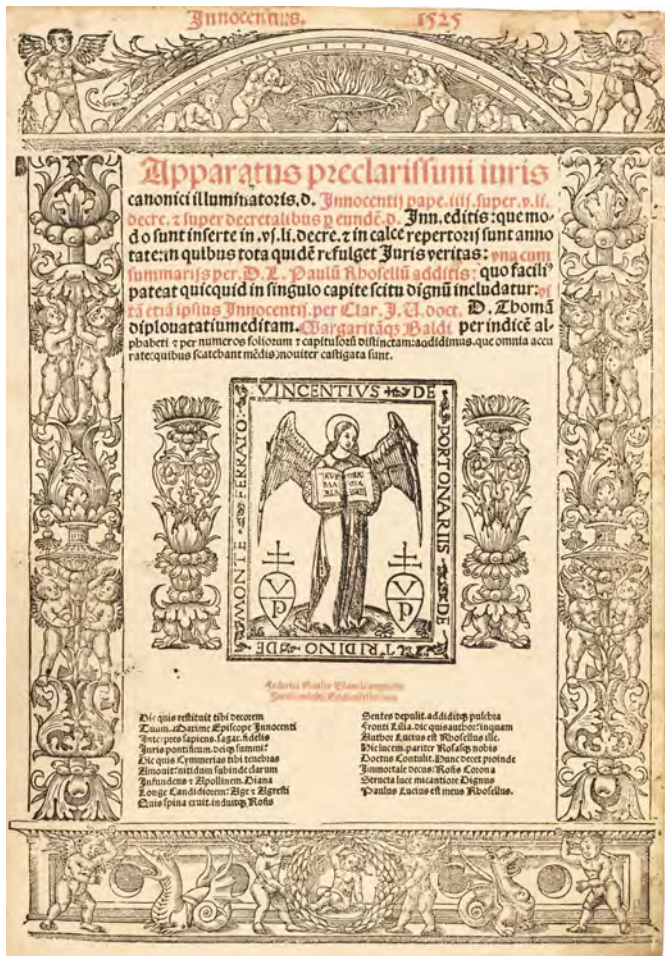 Innocentius. 1525
Apparatus preclarissimi iuris
canonici illuminatoris. d. Innocentij pape. iiij. super. v. li.
decre. ⁊ super decretalibus ꝑ eundē. d. Inn. editis: que mo-
do sunt inserte in. vj. li. decre. ⁊ in calce repertorij sunt anno
tate: in quibus tota quidē refulget Juris veritas: vna cum
summarijs per. D. L. Paulū Rhosellū additis: quo facili⁹
pateat quicquid in singulo capite scitu dignū includatur: vi
tā etiā ipsius Innocentij. per Clar. J. U. doct. D. Thomā
diplouatatium editam. Margaritāqꝫ Baldi per indicē al-
phabeti ⁊ per numeros foliorum ⁊ capitulorū distinctam: addidimus. que omnia accu
rate: quibus scatebant mēdis) nouiter castigata sunt.
VINCENTIVS DE
PORTONARIIS DE
TRIDINO DE
MONTE FERRATO
V P
V P
Dic quis restituit tibi decorem
Tuum. Maxime Episcope Innocenti
Interpres sapiens. sagax. fidelis
Juris pontificum. deiqꝫ summi?
Dic quis Cymmerias tibi tenebras
Amouit? nitidum subinde clarum
Infundens ⁊ Apollinem. Diana
Longe Candidiorem? Age ⁊ Agresti
Quis spina exuit. induitqꝫ Rosis
Sentes depulit. addiditqꝫ pulchra
Fronti Lilia. dic quis author? inquam
Author Lucius est Rhosellus ille.
Hic lucem. pariter Rosasqꝫ nobis
Doctus Contulit. Hunc decet proinde
Immortale decus: Rosis Corona
Structa luce micantiore Dignus
Paulus Lucius est meus Rhosellus.